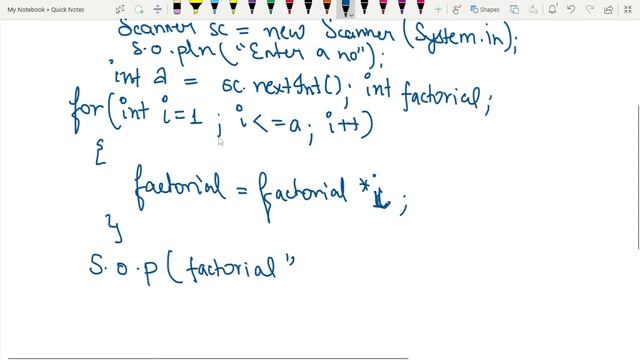 My Notebook » Quick Notes
Share
Scanner sc = new Scanner (System.in);
S.o.pln("Enter a no");
int a = sc.nextInt(); int factorial;
for(int i=1 ; i<=a; i++)
{
factorial = factorial * i ;
}
S.o.p ( factorial "